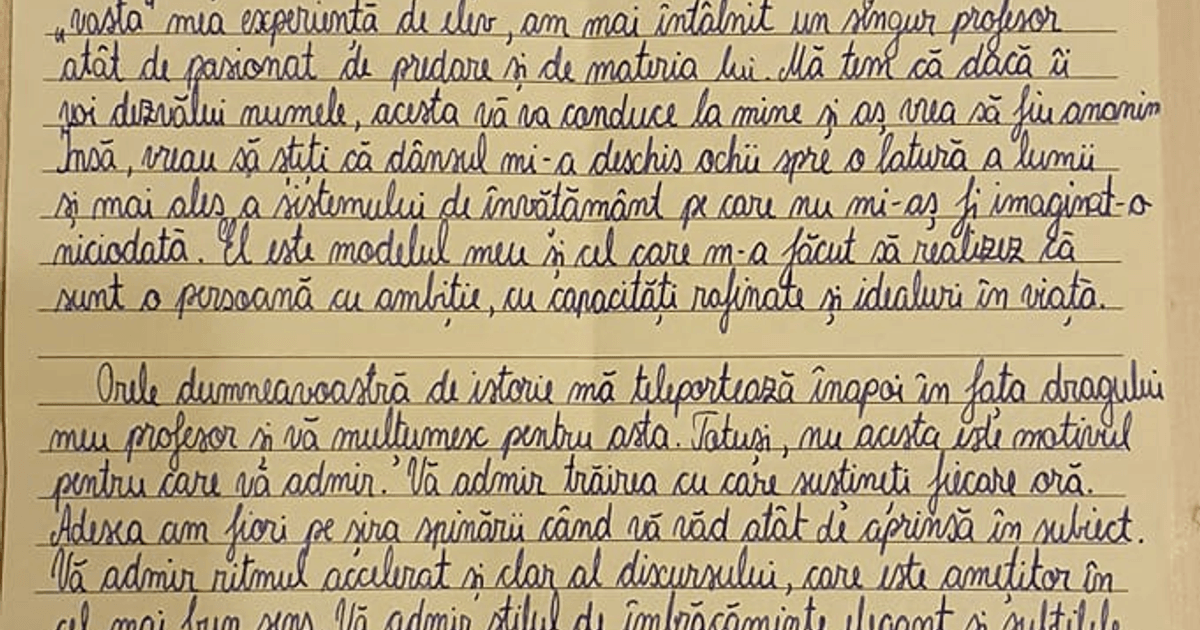 „vasta” mea experiență de elev, am mai întâlnit un singur profesor
atât de pasionat de predare și de materia lui. Mă tem că dacă îi
voi dezvălui numele, acesta vă va conduce la mine și aș vrea să fiu anonim
Însă, vreau să știți că dânsul mi-a deschis ochii spre o latură a lumii
și mai ales a sistemului de învățământ pe care nu mi-aș fi imaginat-o
niciodată. El este modelul meu și cel care m-a făcut să realizez că
sunt o persoană cu ambiție, cu capacități rafinate și idealuri în viață.
Orele dumneavoastră de istorie mă teleportează înapoi în fața dragului
meu profesor și vă mulțumesc pentru asta. Totuși, nu acesta este motivul
pentru care vă admir. Vă admir trăirea cu care susțineți fiecare oră.
Adesea am fiori pe șira spinării când vă văd atât de aprinsă în subiect.
Vă admir ritmul accelerat și clar al discursului, care este amețitor în
cel mai bun sens. Vă admir stilul de îmbrăcăminte elegant și subtilele